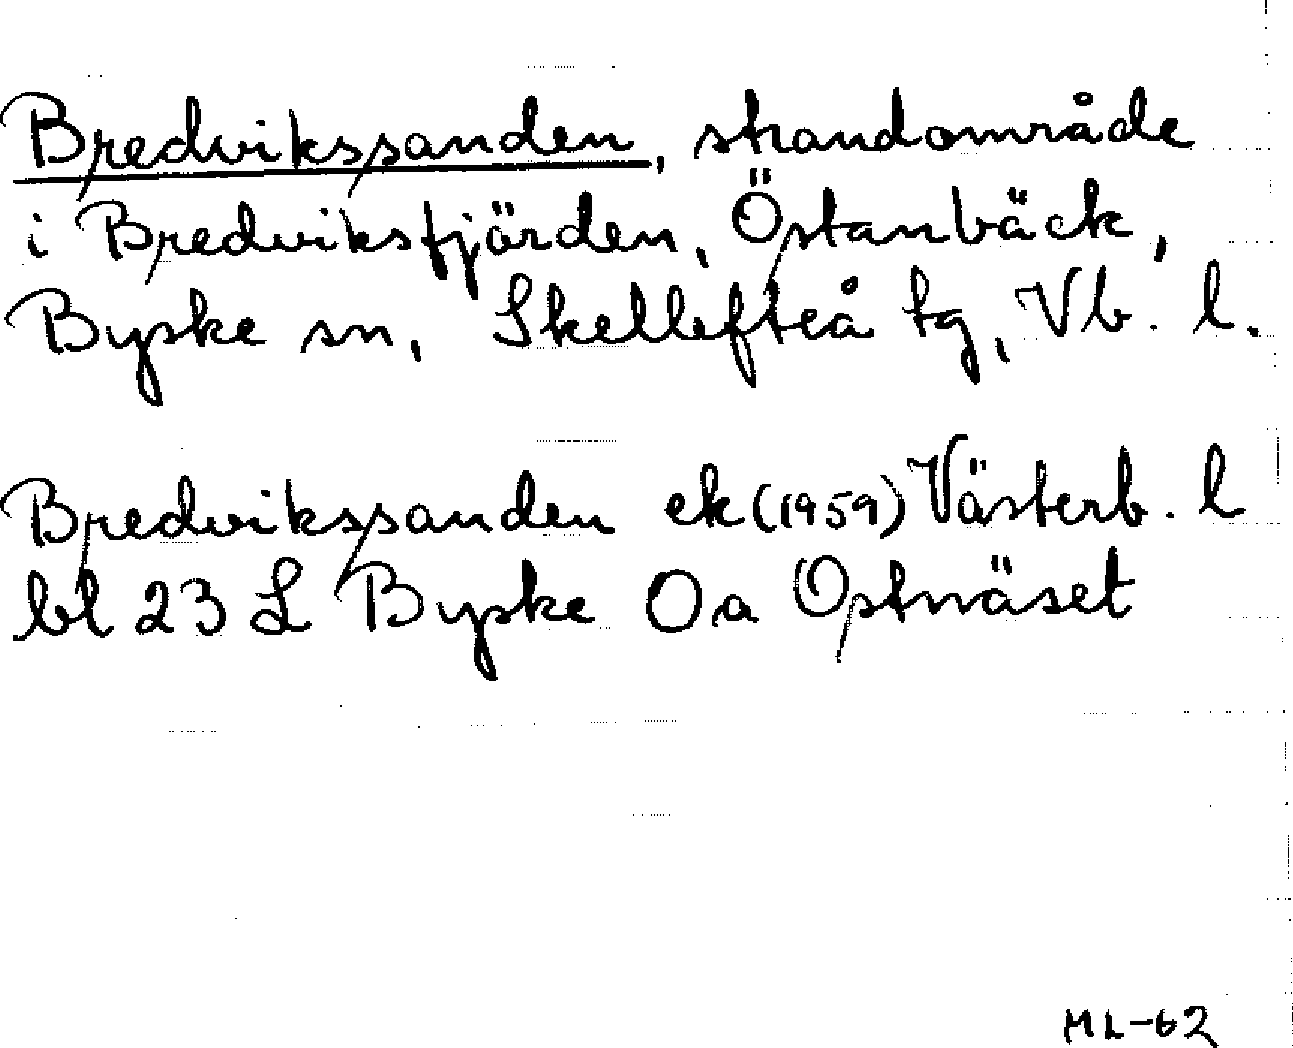 Bredvikssanden, strandområde
i Bredviksfjärden, Östanbäck,
Byske sn, Skellefteå tg, Vb. l.
Bredvikssanden ek (1959) Västerb. l
bl 23 L Byske 0a Ostnäset
ML-62